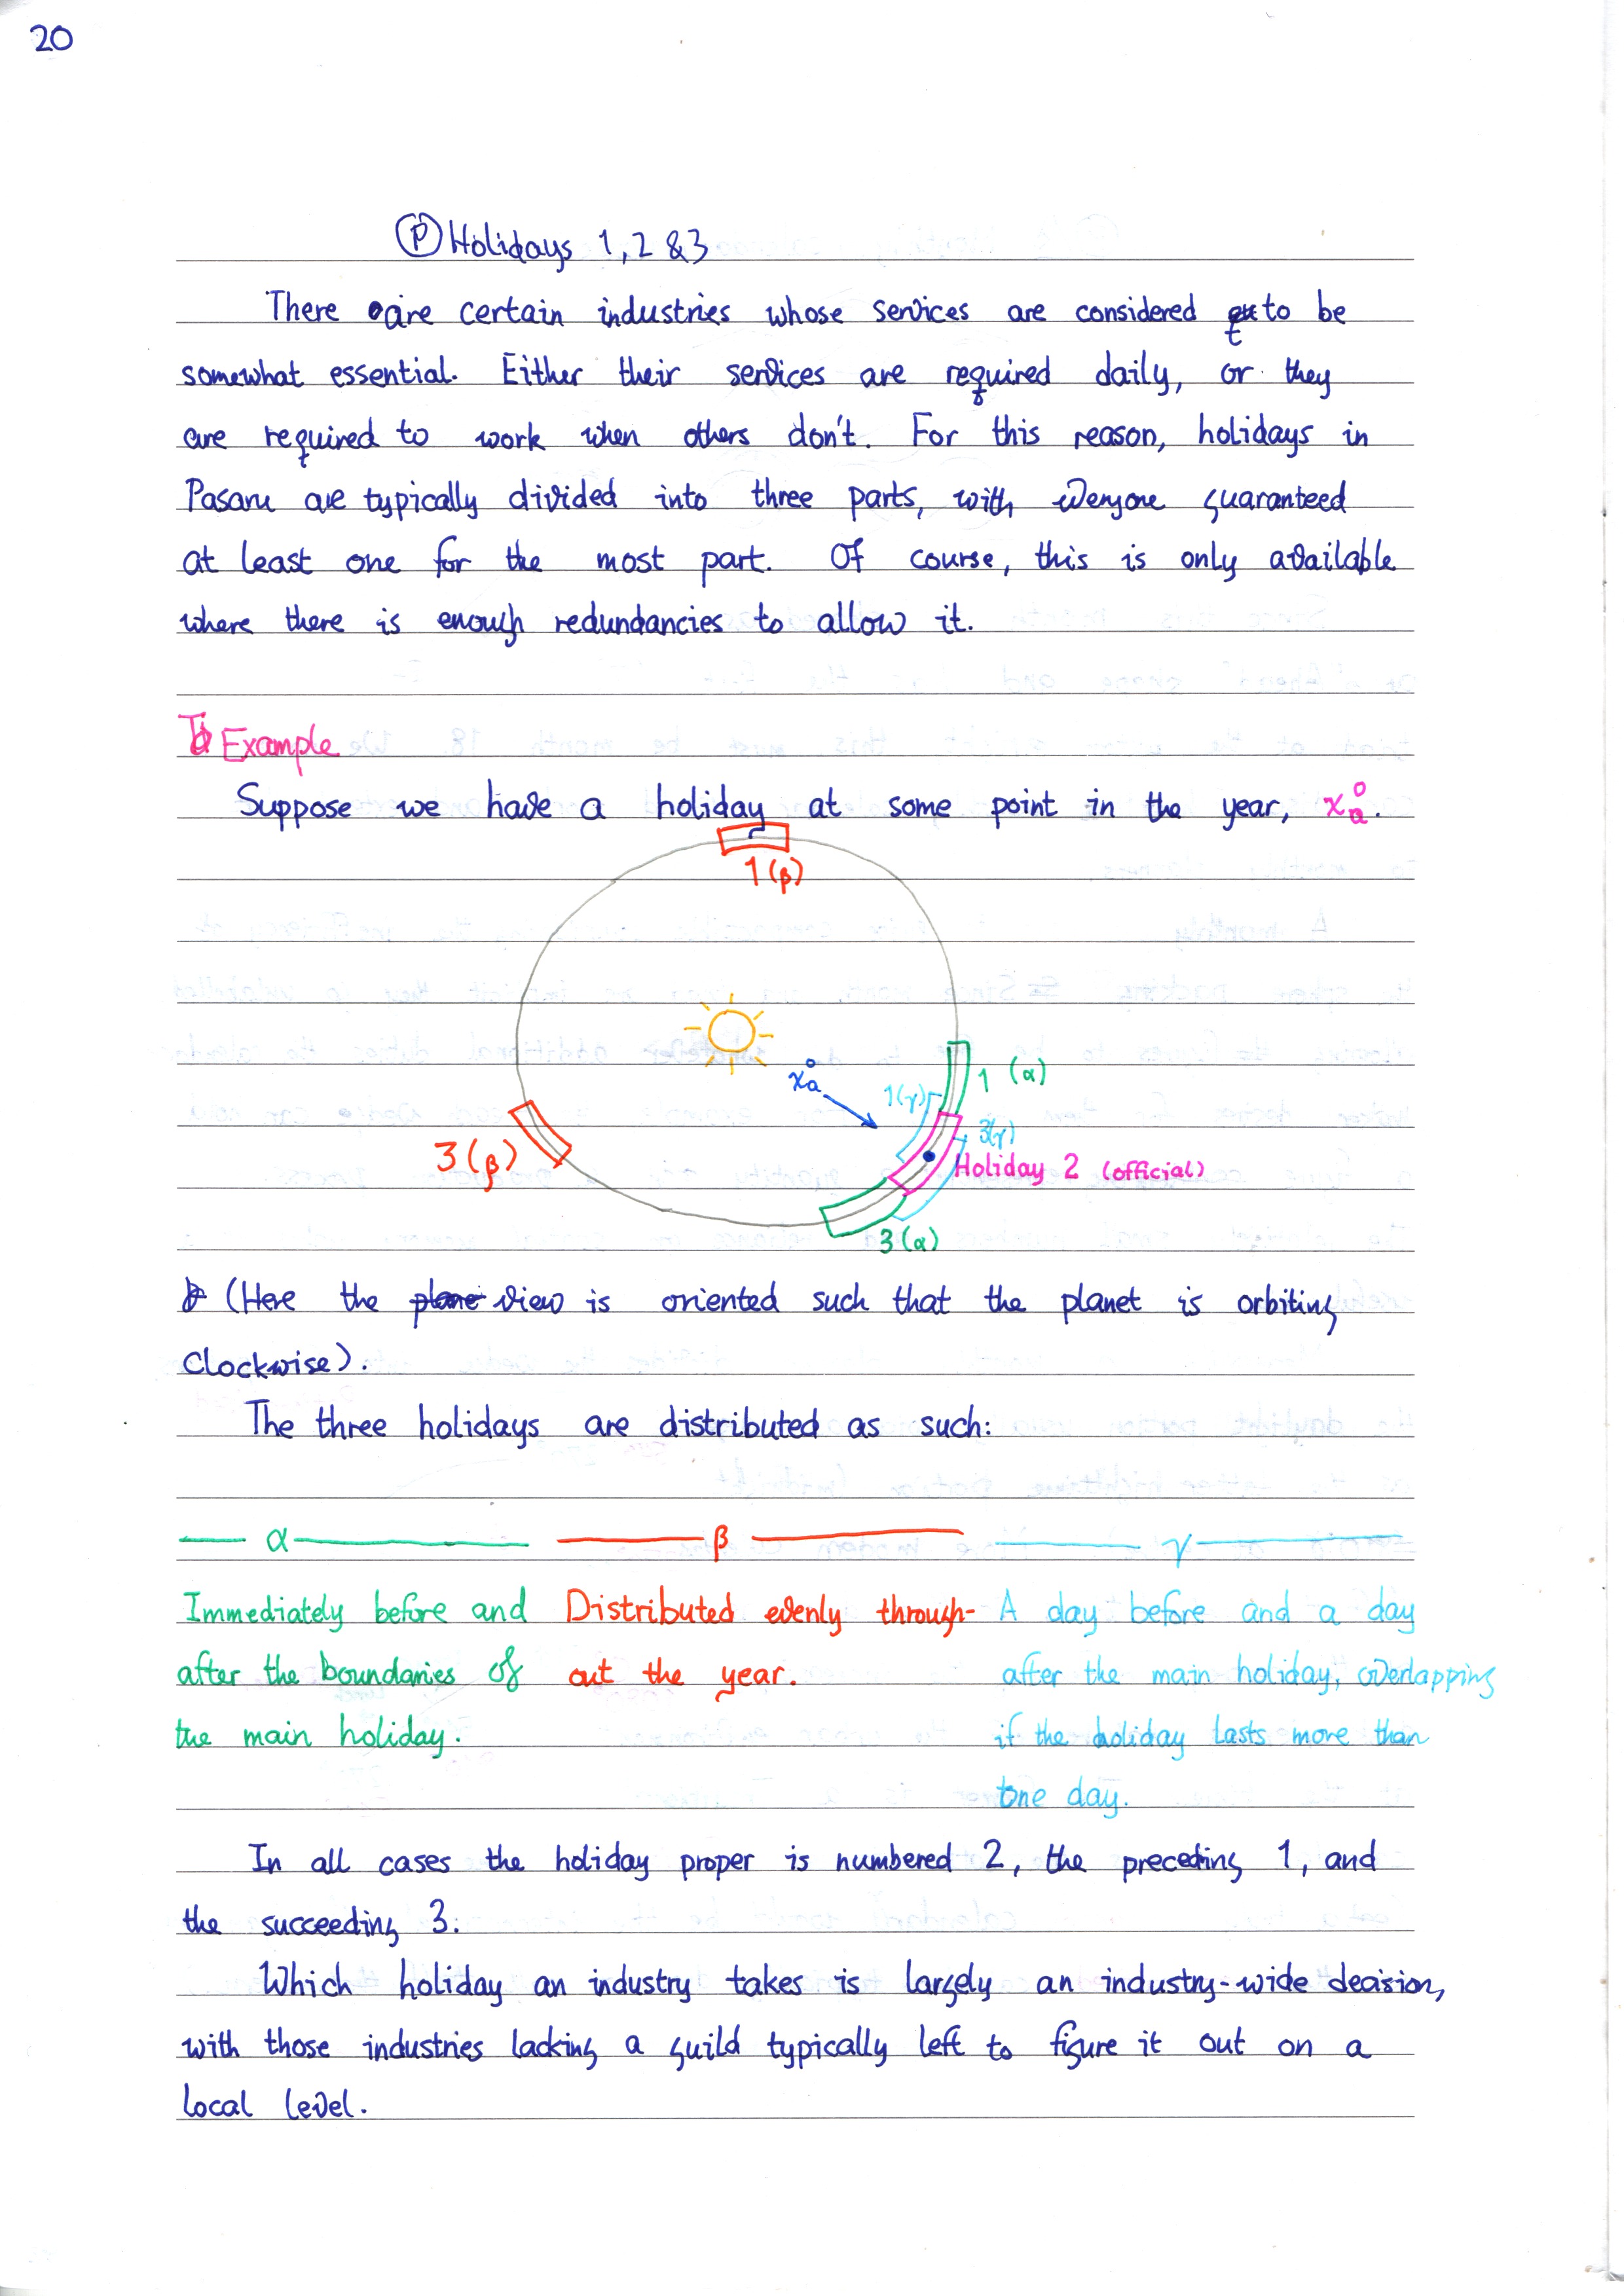 20
Ⓟ Holidays 1, 2 & 3
There are certain industries whose services are considered to be
somewhat essential. Either their services are required daily, or they
are required to work when others don't. For this reason, holidays in
Pasaru are typically divided into three parts, with everyone guaranteed
at least one for the most part. Of course, this is only available
where there is enough redundancies to allow it.
Example
Suppose we have a holiday at some point in the year, x°a.
1 (β)
x°a
1 (α)
1(γ)
3(γ)
3 (β)
Holiday 2 (official)
3 (α)
(Here the plane view is oriented such that the planet is orbiting
clockwise).
The three holidays are distributed as such:
α β γ
Immediately before and Distributed evenly through- A day before and a day
after the boundaries of out the year. after the main holiday, overlapping
the main holiday. if the holiday lasts more than
one day.
In all cases the holiday proper is numbered 2, the preceding 1, and
the succeeding 3.
Which holiday an industry takes is largely an industry-wide decision,
with those industries lacking a guild typically left to figure it out on a
local level.